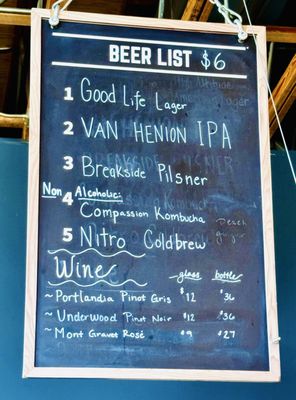 BEER LIST $6
1 Good Life Lager
2 VAN HENION IPA
3 Breakside Pilsner
Non Alcoholic:
4 Compassion Kombucha
Peach
ginger
5 Nitro Coldbrew
Wine glass bottle
~ Portlandia Pinot Gris $12 $36
~ Underwood Pinot Noir $12 $36
~ Mont Gravet Rosé $9 $27